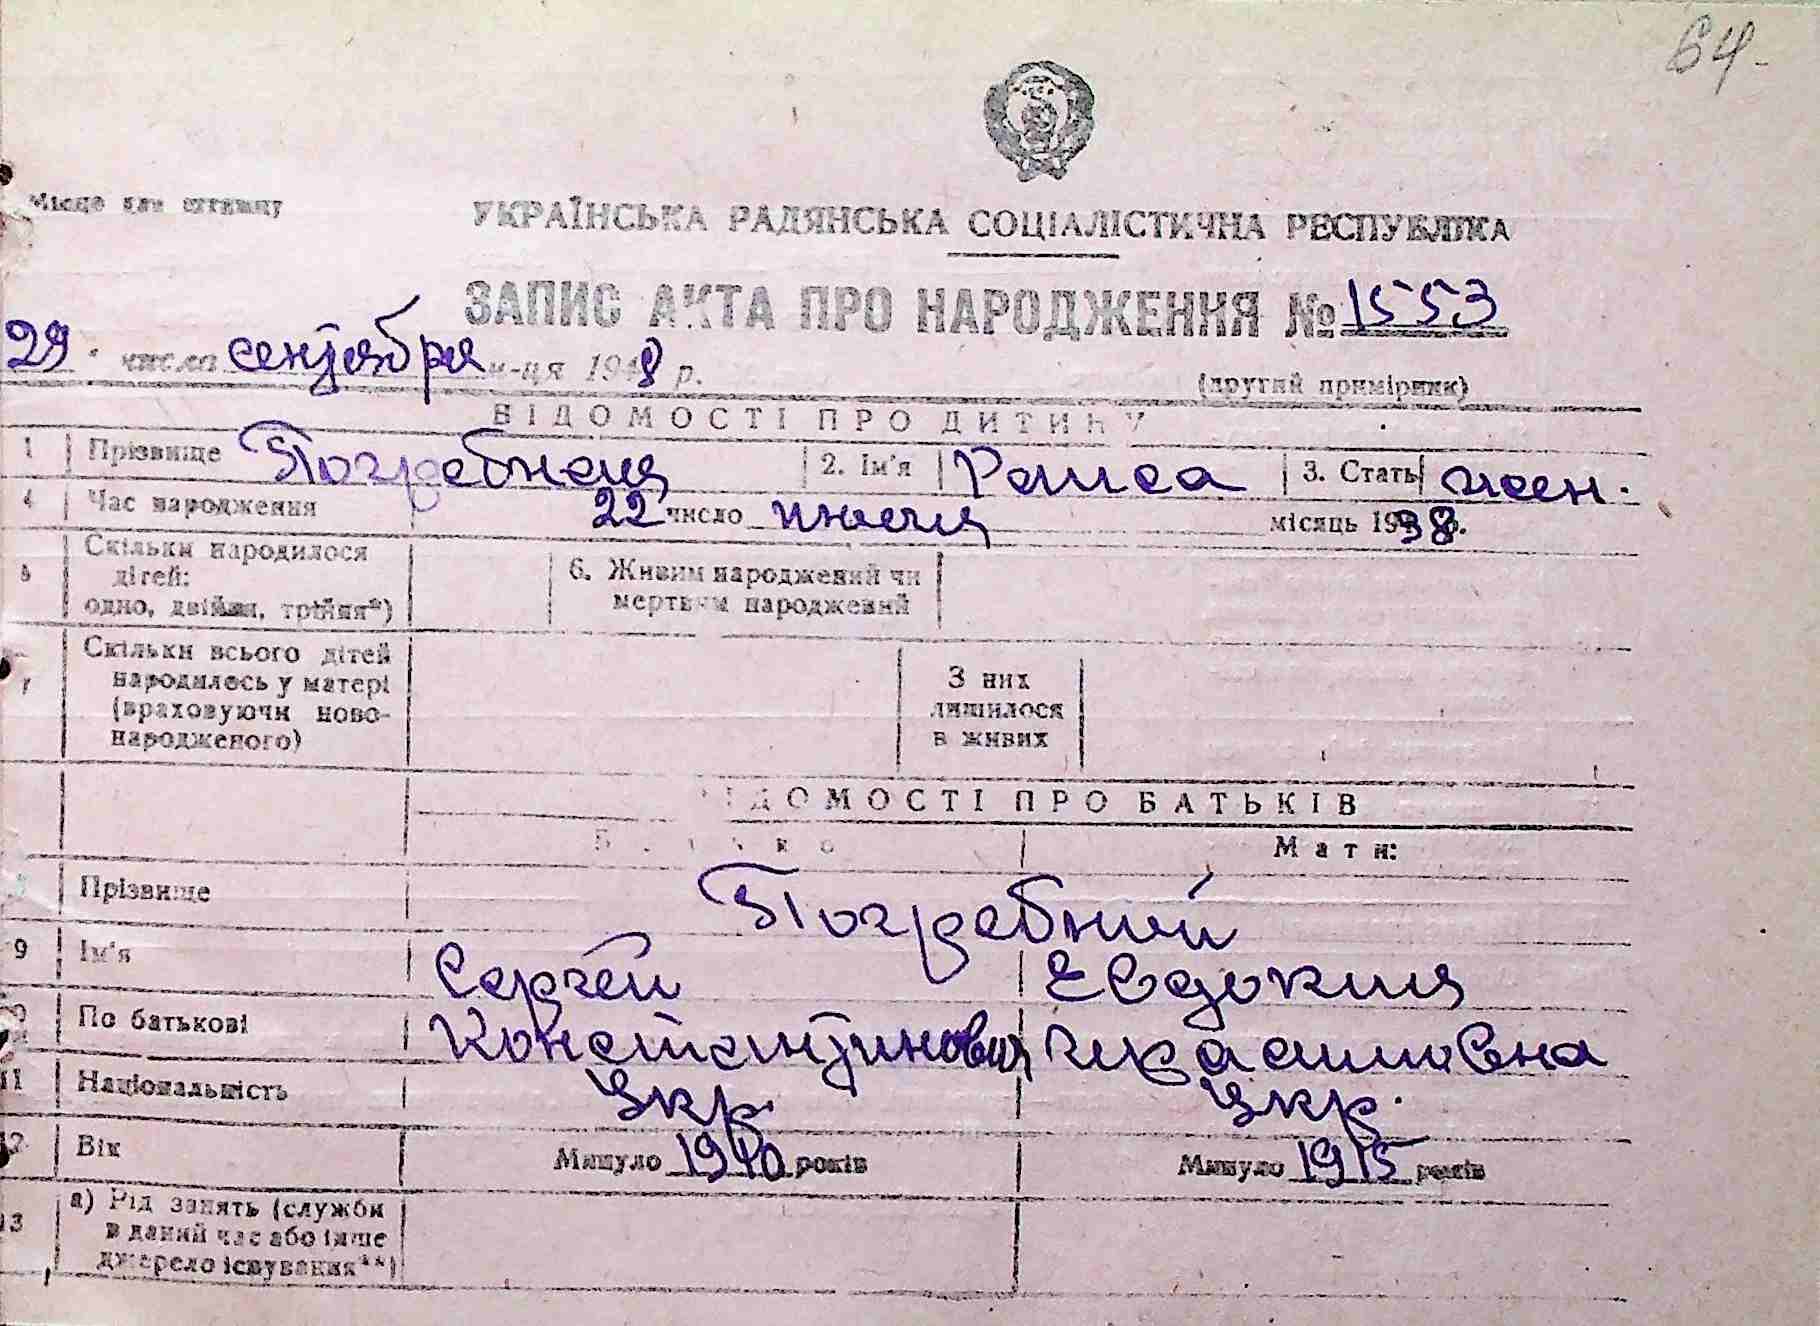 64
Місце для штампу
УКРАЇНСЬКА РАДЯНСЬКА СОЦІАЛІСТИЧНА РЕСПУБЛІКА
ЗАПИС АКТА ПРО НАРОДЖЕННЯ № 1553
29 числа сентября м-ця 1948 р.
(другий примірник)
ВІДОМОСТІ ПРО ДИТИНУ
1 Прізвище 2. Ім'я Раиса 3. Стать жен.
4 Час народження 22 число місяць 1938 р.
5 Скільки народилося дітей: одно, двійня, трійня*) 6. Живим народжений чи мертвим народжений
7 Скільки всього дітей народилось у матері (враховуючи новонародженого) З них лишилося в живих
ВІДОМОСТІ ПРО БАТЬКІВ
Батько Мати:
Прізвище Погребний
9 Ім'я Сергей Евдокия
По батькові Константинович
11 Національність укр. укр.
12 Вік Минуло 1910 років Минуло 1915 років
13 а) Рід занять (служби в даний час або інше джерело існування**)